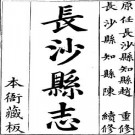 原任長沙縣知縣趙 重修
長沙縣知縣陳 續修
長沙縣志
本衙藏板